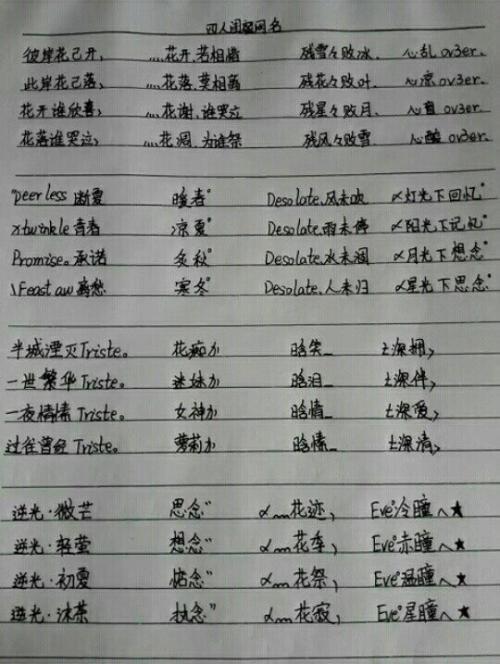 四人闺蜜网名
彼岸花已开, ....花开.若相惜 残雪々败冰. 心乱 ov3er.
此岸花已落, ....花落.莫相离 残花々败叶. 心凉 ov3er.
花开谁欣喜, ....花谢.谁哭泣 残星々败月. 心 ov3er.
花落谁哭泣, ....花凋.为谁祭 残风々败雪 心酸 ov3er.
"peerless 夏 暖春° Desolate.风未吹 α灯光下回忆"
xtwinkle青春 凉夏° Desolate.雨未停 α阳光下记忆"
Promise。承诺 冬秋° Desolate.水未涸 α月光下想念"
\Feast aw离愁 寒冬° Desolate.人未归 α星光下思念"
半城湮灭Triste。 花痴か 晗笑_ 土深拥,
一世繁华Triste。 迷妹か 晗泪_ 土深伴,
一夜情愫Triste。 女神か 晗情_ 土深爱,
过往曾经Triste。 萝莉か 晗情_ 土深清,
逆光·微芒 思念" α灬花迹, Eve°冷瞳へ★
逆光·轻萤 想念" α灬花季, Eve°赤瞳へ★
逆光·初夏 惦念" α灬花祭, Eve°温瞳へ★
逆光·沫茶 执念" α灬花寂, Eve°星瞳へ★